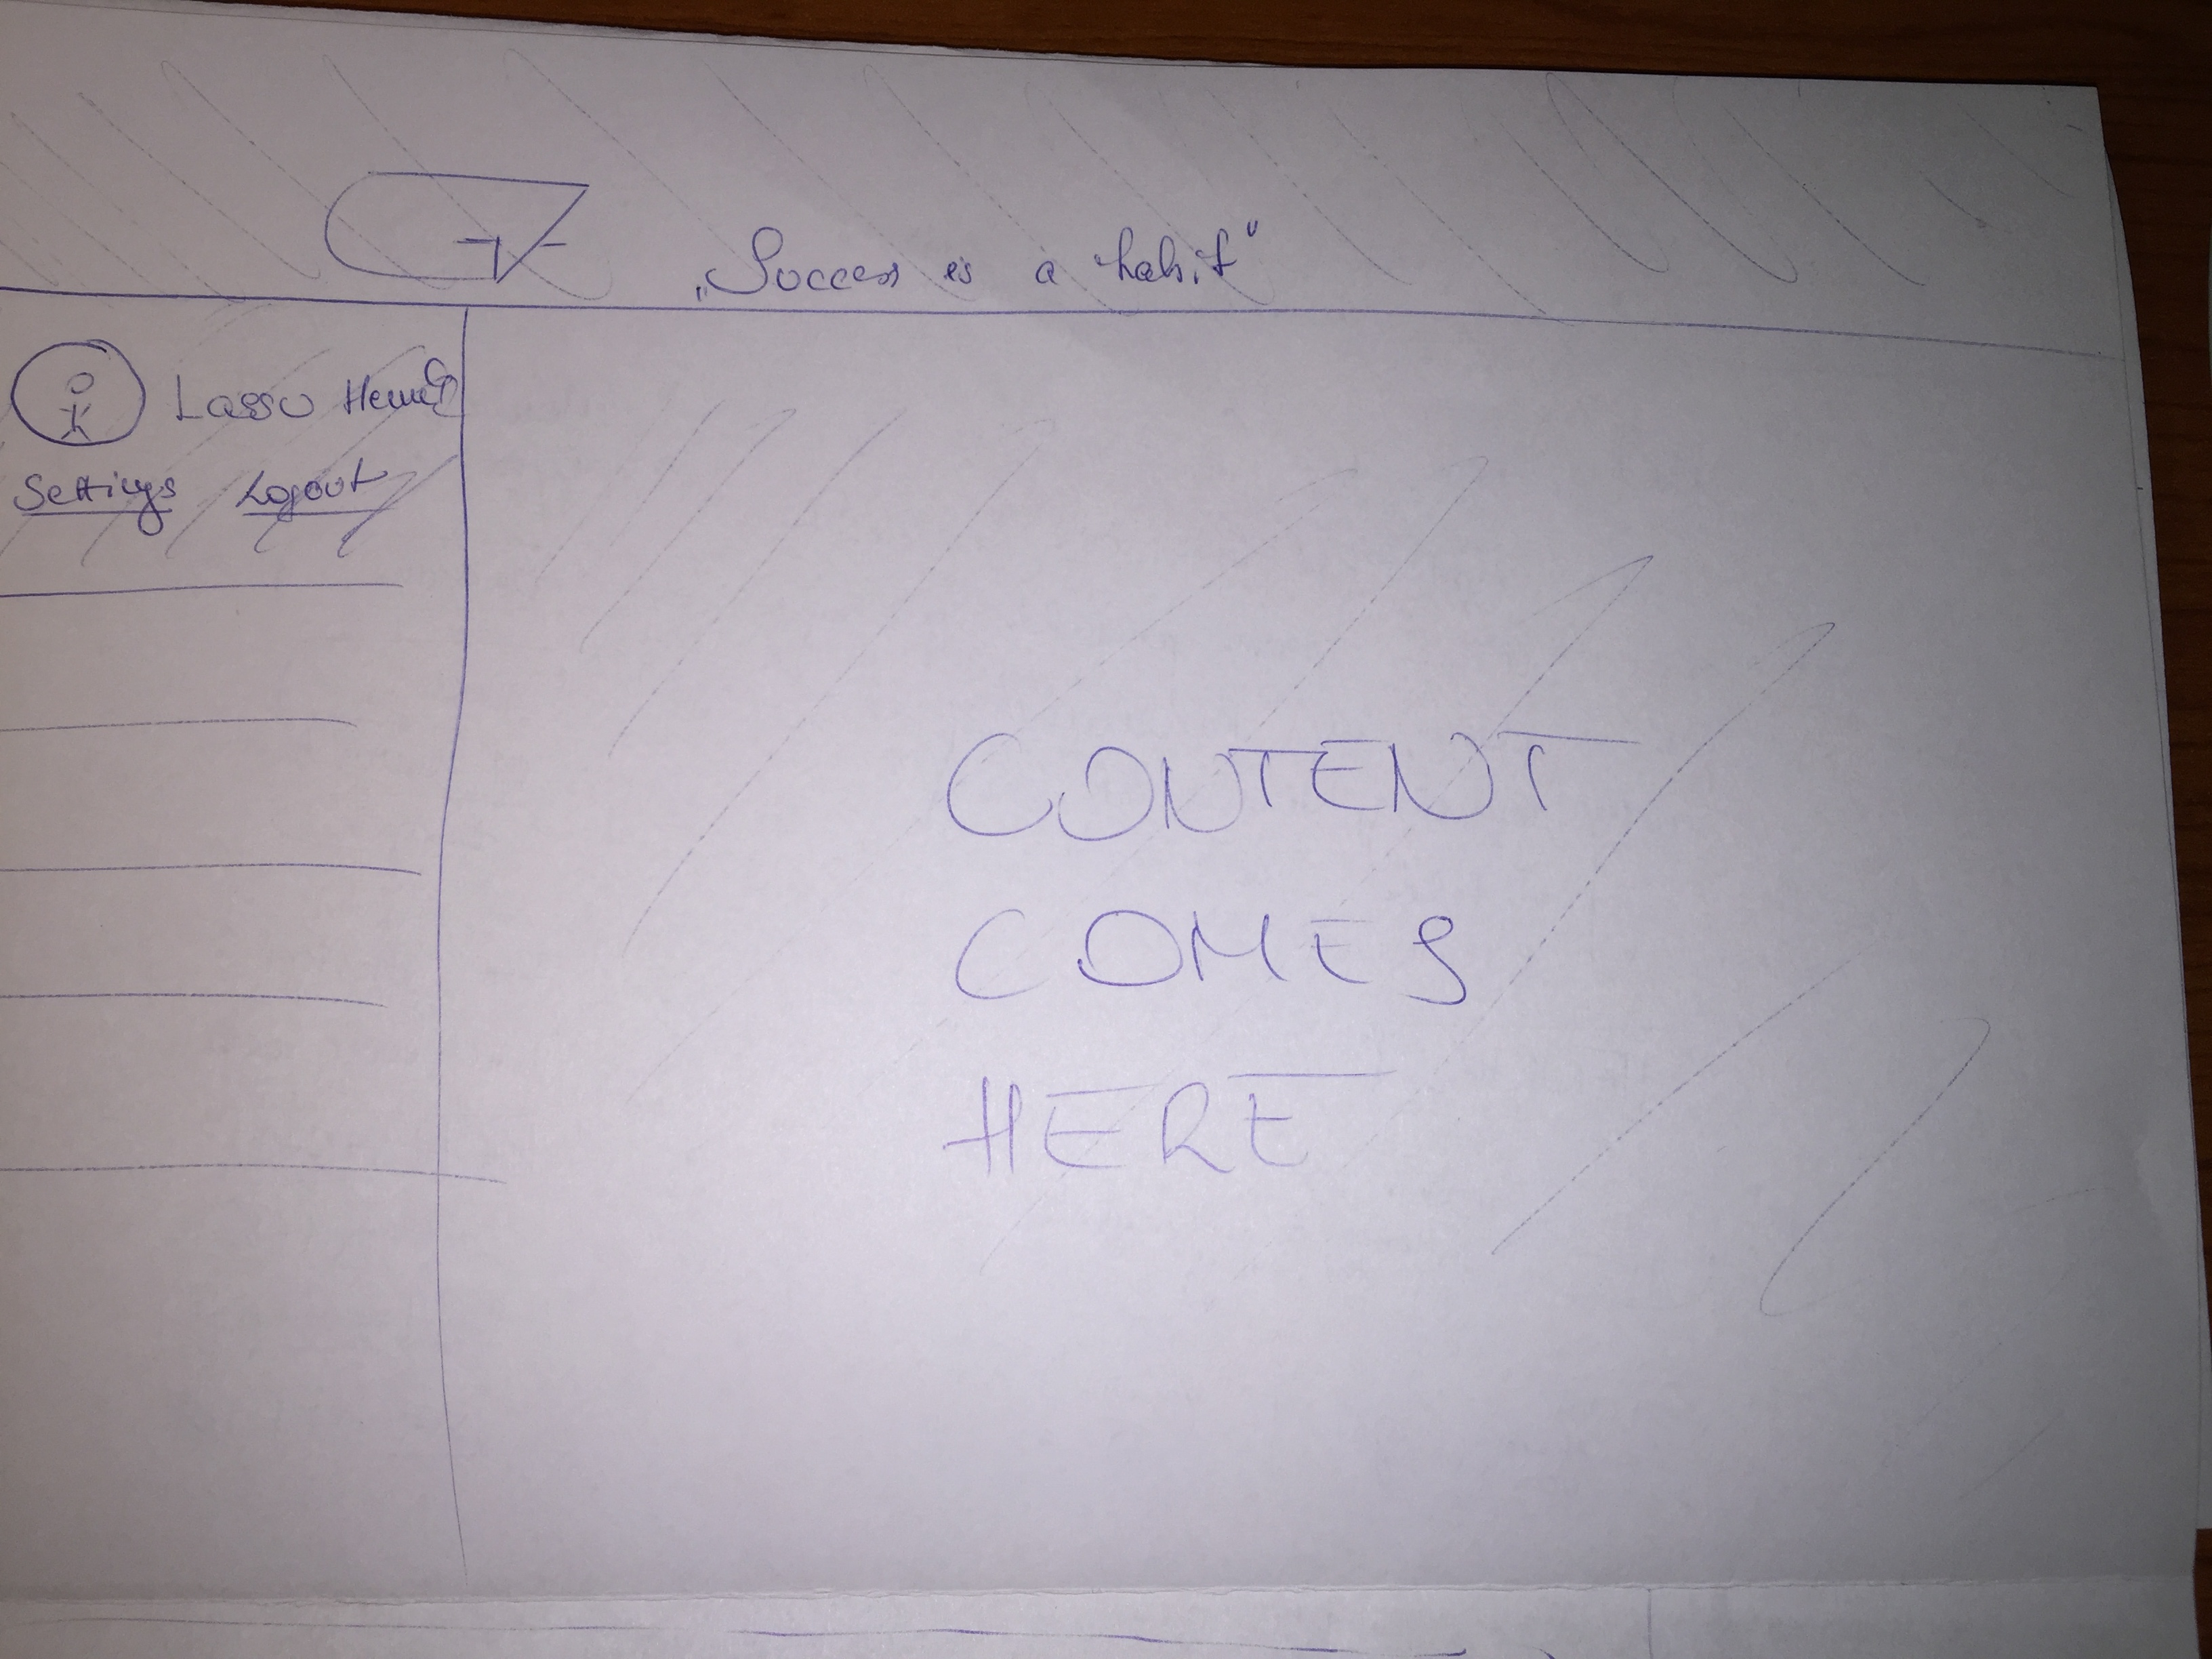 „Success is a habit"
Lasso
Settings Logout
CONTENT
COMES
HERE